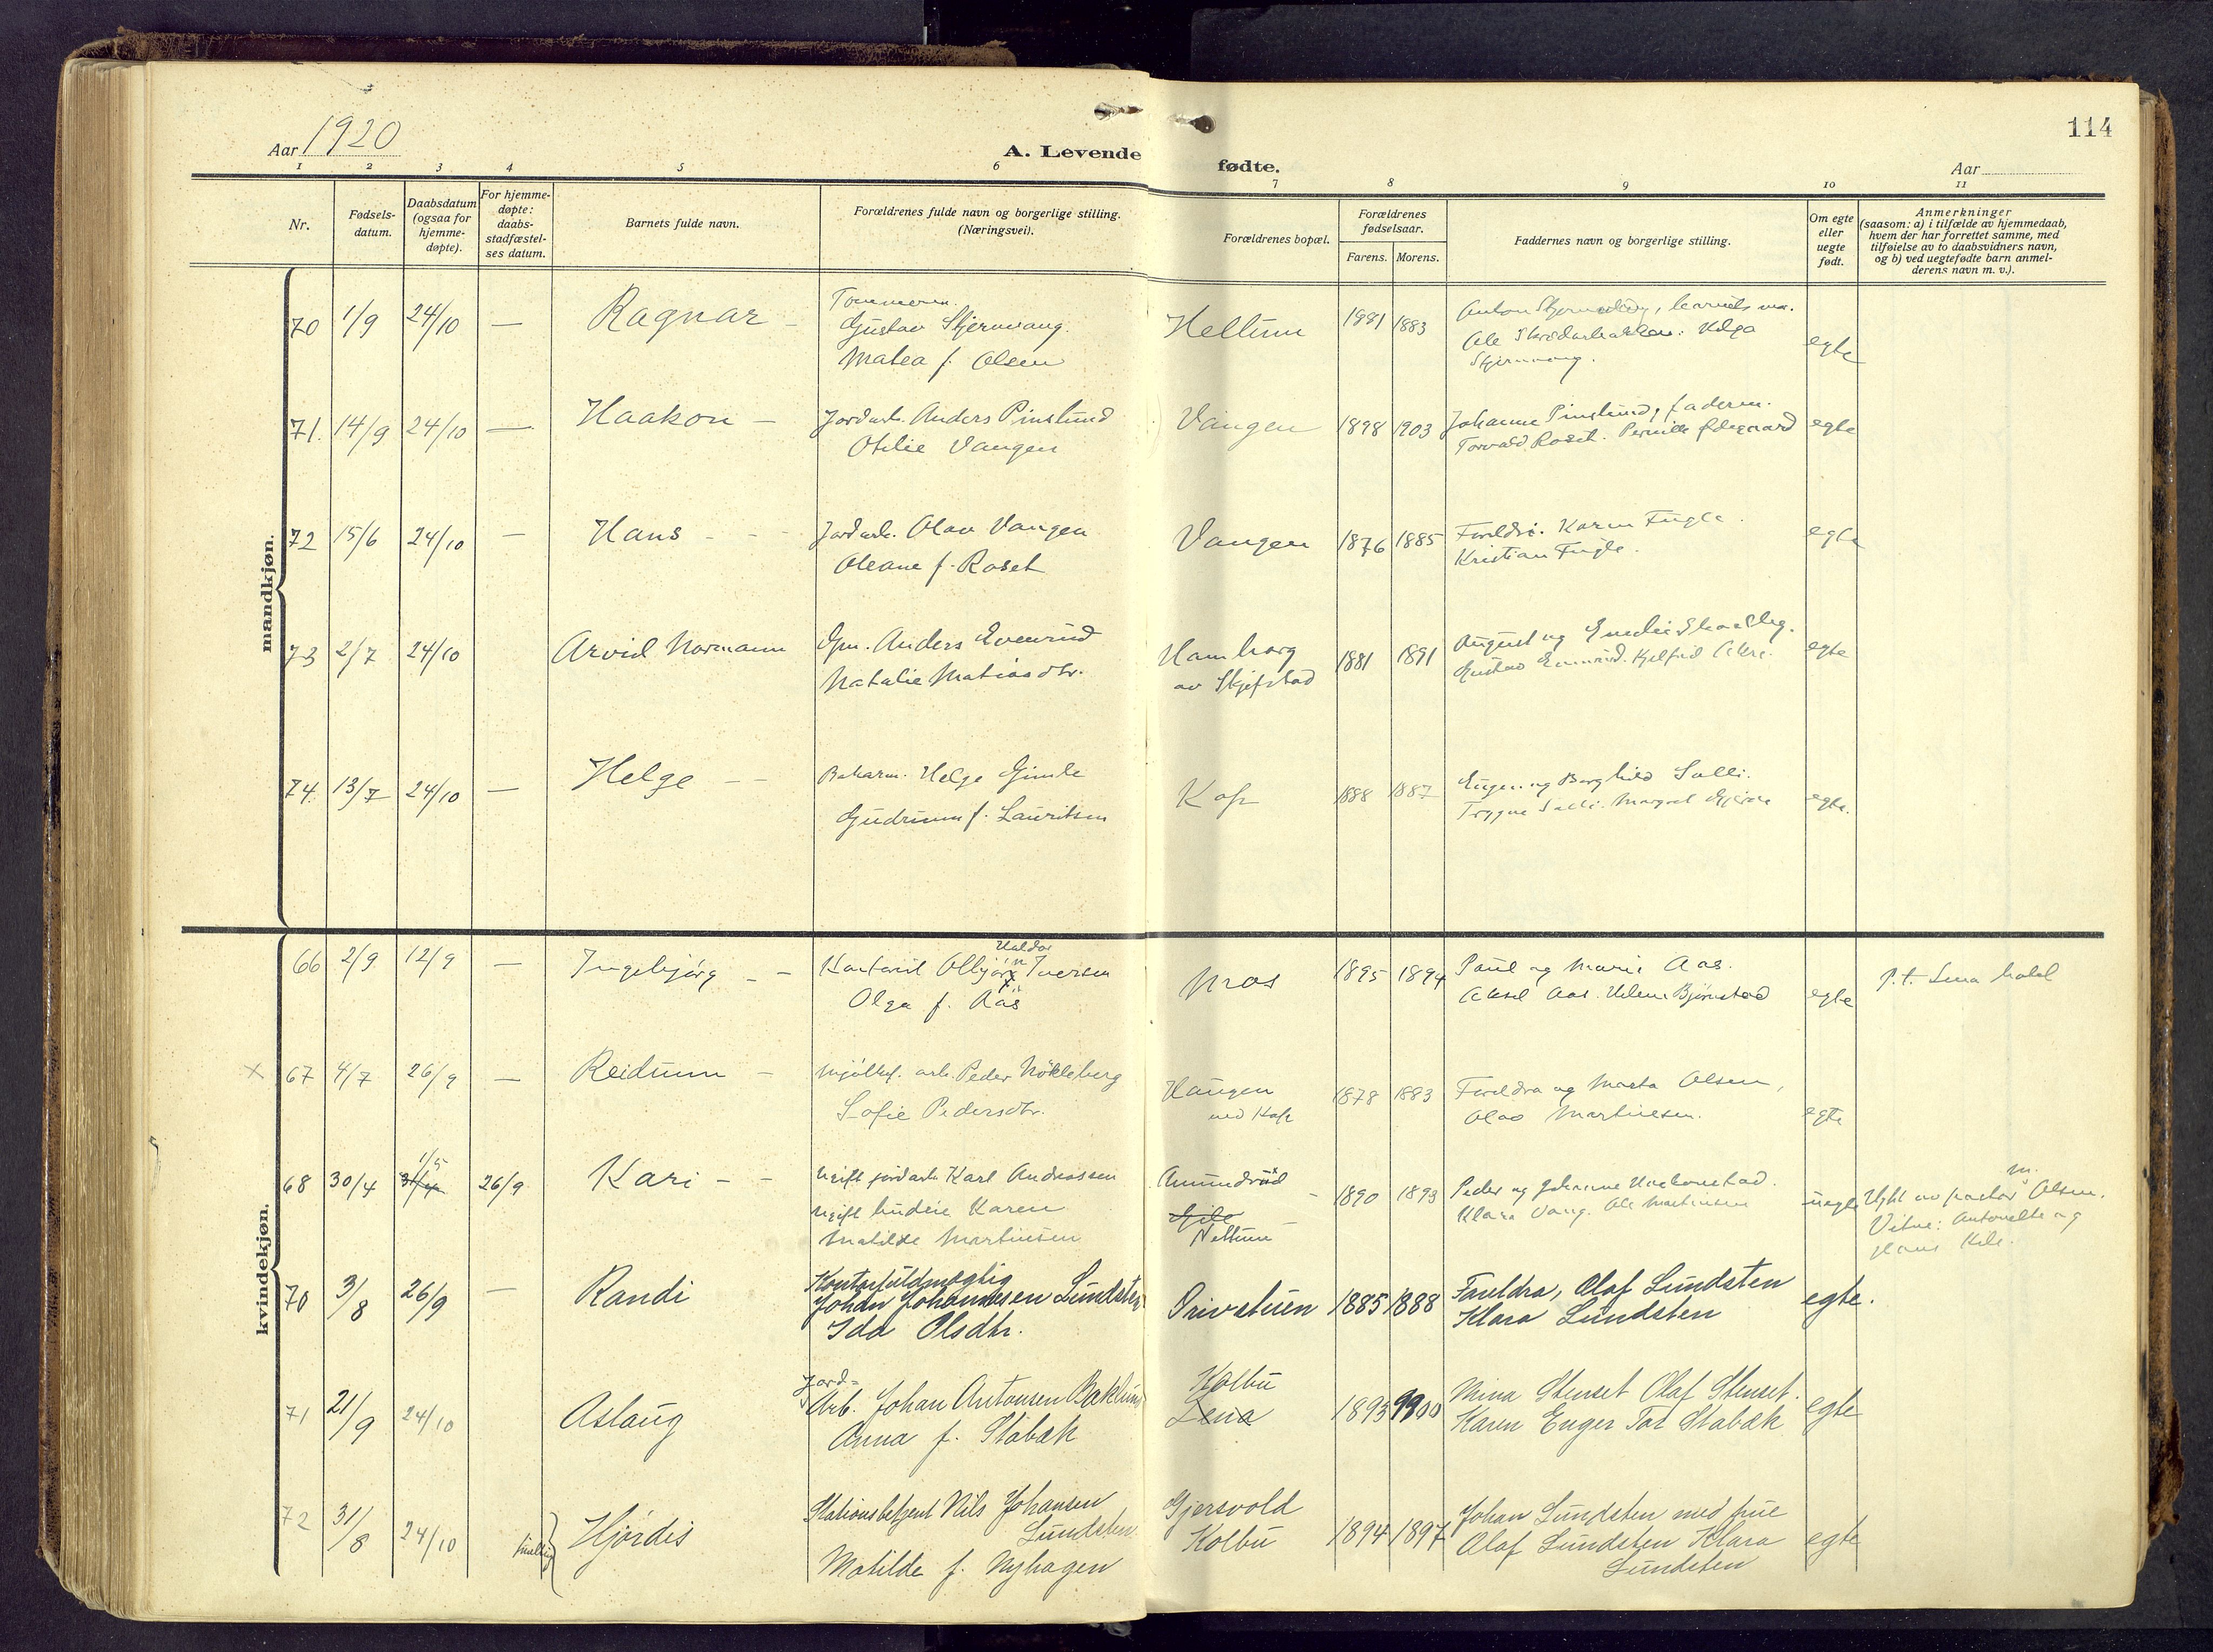 114
Aar 1920
A. Levende fødte.
Aar
1 2 3 4 5 6 7 8 9 10 11
Nr.
Fødsels-
datum.
Daabsdatum
(ogsaa for
hjemme-
døpte).
For hjemme-
døpte:
daabs-
stadfæstel-
ses datum.
Barnets fulde navn.
Forældrenes fulde navn og borgerlige stilling.
(Næringsvei).
Forældrenes bopæl.
Forældrenes
fødselsaar.
Farens. Morens.
Faddernes navn og borgerlige stilling.
Om egte
eller
uegte
født.
Anmerkninger
(saasom: a) i tilfælde av hjemmedaab,
hvem der har forrettet samme, med
tilføielse av to daabsvidners navn,
og b) ved uegtefødte barn anmel-
derens navn m. v.).
mandkjøn.
70 1/9 24/10 — Ragnar –
Gustav Stjernvang.
Matea f. Olsen
Hellum
1883
egte
71. 14/9 24/10 — Haakon –
Jordarb. Anders Pinslund
Otilie Vangen
Vangen
1898 1903
Johanne Pinslund, faderen.
Torvald Roset. Pernille Ødegaard
egte
72 15/6 24/10 — Hans – – –
Jordarb. Olav Vangen
Oleane f. Roset
Vangen
1876 1885
Foreldre. Karen Fugle.
Kristian Fugle.
egte
73 2/7 24/10 Arvid Normann
Gm. Anders Evenrud
Natalie Matiasdtr.
Hamborg
av Skjefstad
1881 1891
August og
Gustav
egte
74. 13/7 24/10 — Helge – –
Helge Gimle
Gudrunn f. Lauritsen
Kap
1888 1887
Eugen og Borghild Salli.
Trygve Salli. Margit
egte.
kvindekjøn.
66 2/9 12/9 — Ingebjørg – –
Haldor
Iversen
Olga f. Aas
Nras
1895 1894
Paul og Marie Aas.
Aksel Aas. Helene Bjørnstad
egte
P.t. Lena hotel
x 67 4/7 26/9 — Reidunn –
arb. Peder Nøkleberg
Sofie Pedersdtr.
Haugen
ved Kap
1878 1883
Foreldra og Marta Olsen,
Olav Martinsen.
egte
1/5
68 30/4 31/4 26/9 Kari – –
Ugift jordarb. Karl Andreassen
Ugift budeie Karen
Matilde Martinsen
Amundrud
Gile
Nettum
1890 1893
Peder og Johanne
Klara Vang. Ole Martinsen
uegte
av pastor Olsen.
Vitne: Antonette og
Hans Kile.
70 3/8 26/9 — Randi
Kontorfuldmægtig
Johan Johannesen Lundsten
Ida Olsdtr.
Privatuen
1885 1888
Foreldra, Olaf Lundsten
Klara Lundsten
egte.
71 21/9 24/10 Aslaug
Jord-
Arb. Johan Antonsen Baklund
Anna f. Stabæk
Kolbu
Lena
1893 1900
Mina Stenset Olaf Stenset.
Karen Enger Tor Stabæk
egte
72 31/8 24/10 tvilling Hjørdis
Stationsbetjent Nils Johansen
Lundsten
Matilde f. Nyhagen
Gjersvold
Kolbu
1894 1897
Johan Lundsten med frue
Olaf Lundsten Klara
Lundsten
egte